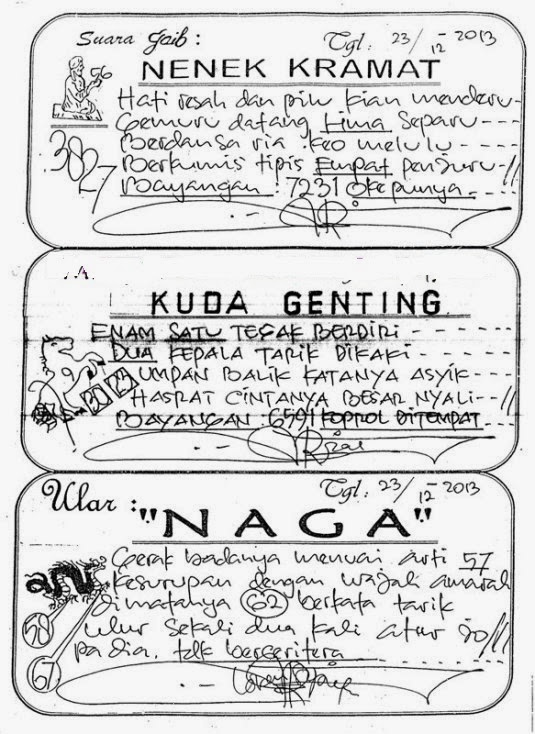 Suara Gaib :
Tgl: 23/12-2013
56
NENEK KRAMAT
Hati resah dan pilu kian menderu-
Gemuru datang Lima Separu ----
Berdansa ria :keo melulu ----
Berkumis tipis Empat penjuru-//
3827
Bayangan : 7231 Okepunya.----
.A.
KUDA GENTING
ENAM SATU TEGAK BERDIRI
DUA KEPALA TARIK DIKAKI
UMPAN BALIK KATANYA ASYIK
HASRAT CINTANYA BESAR NYALI--//
BAYANGAN : 6591 KOPROL DITEMPAT
Ular :
Tgl: 23/12-2013
"NAGA"
Gerak badanya menuai arti 57
Kesurupan dengan wajah amarah
Dimatanya 62 berkata tarik
ulur sekali dua kali atur
pa dia. tdk berceritera
67